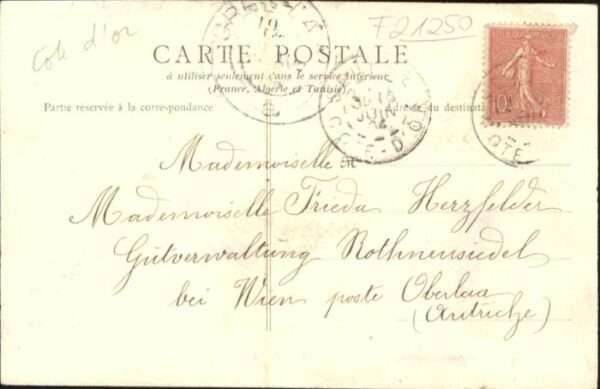 Côte d'or
F21250
CARTE POSTALE
à utiliser seulement dans le service intérieur
(France, Algérie et Tunisie)
Partre réservée à la correspondance
Adresse du destinat
10
JUIN
CÔTE-D'O
Mademoiselle
Mademoiselle Frieda Herzfelder
Gutverwaltung Rothneusiedel
bei Wien poste Oberlaa
(Autriche)